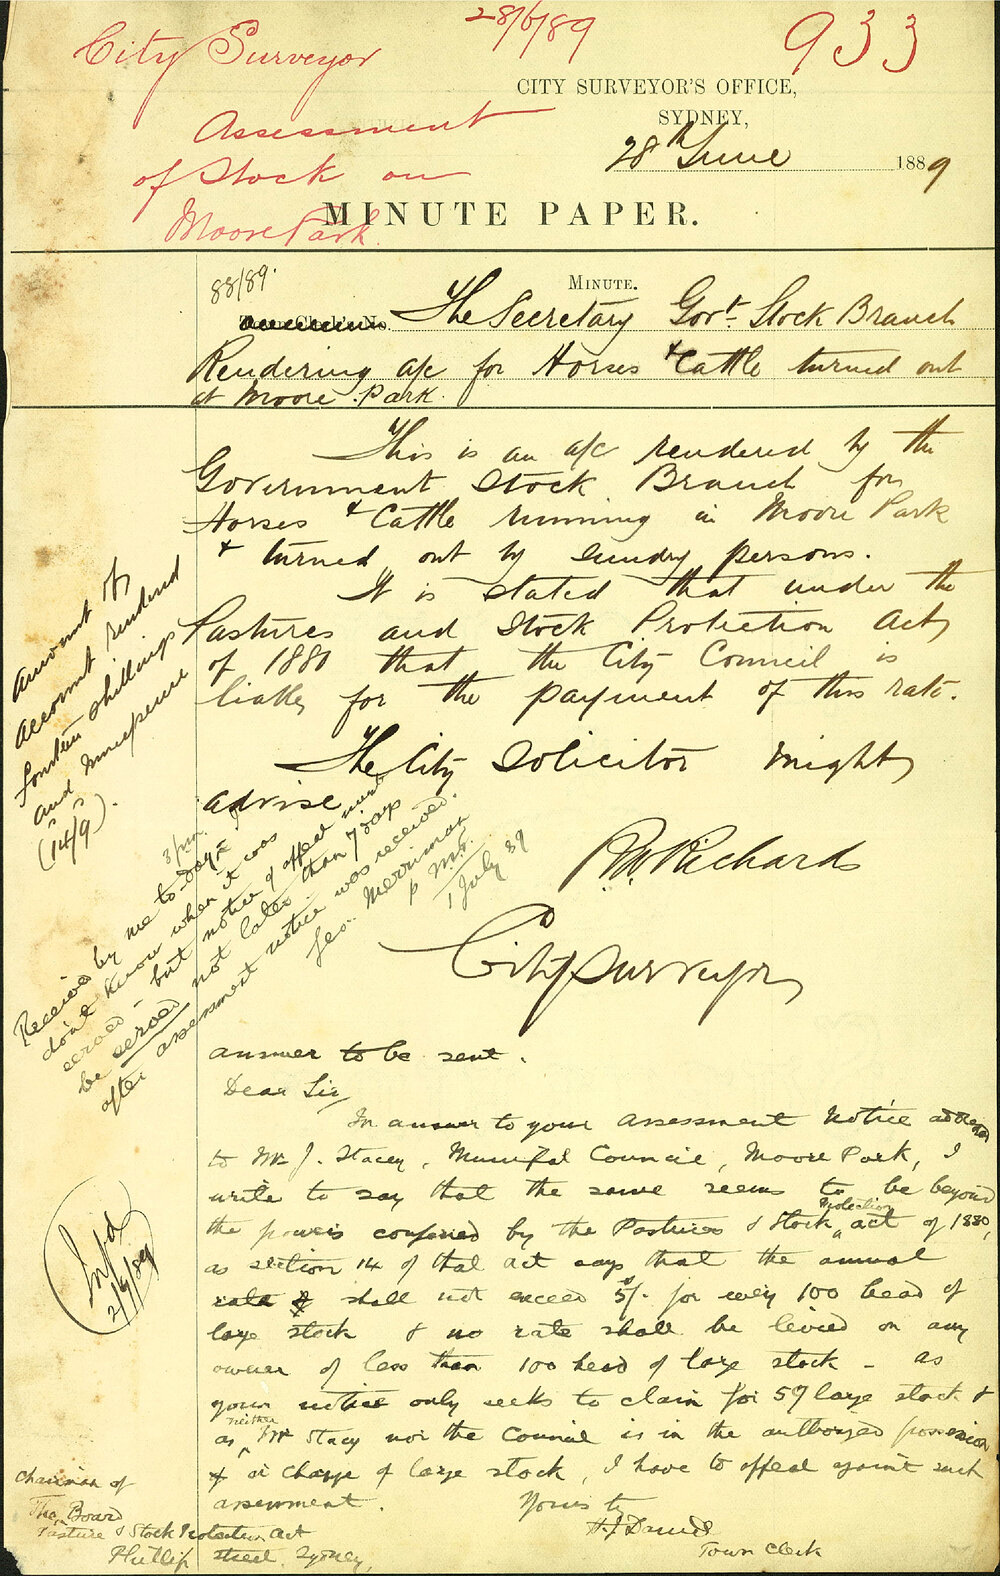 City Surveyor
28/6/89
933
CITY SURVEYOR'S OFFICE,
SYDNEY,
28th June 1889
Assessment
of Stock on
Moore Park
MINUTE PAPER.
88/89.
MINUTE.
The Secretary Govt. Stock Branch
Rendering a/c for Horses & Cattle turned out
at Moore Park.
This is an a/c rendered by the
Government Stock Branch for
Horses & Cattle running in Moore Park
& turned out by sundry persons.
It is stated that under the
Pastures and Stock Protection Act
of 1880 that the City Council is
liable for the payment of this rate.
The City Solicitor might
advise
R. W. Richards
City Surveyor
Amount of
account rendered
fourteen shillings
and ninepence
(14s/9).
Received by me to day 3/pm.
don't know when it was
served - but notice of appeal must
be served not later than 7 days
after assessment notice was received.
Geo. Merriman
p
1 July 89
answer to be sent.
Dear Sir,
In answer to your assessment notice addressed
to Mr J. Stacey, Municipal Council, Moore Park, I
write to say that the same seems to be beyond
the powers conferred by the Pastures & Stock Protection act of 1880,
as section 14 of that act says that the annual
rate shall not exceed 5/- for every 100 head of
large stock & no rate shall be levied on any
owner of less than 100 head of large stock - as
your notice only seeks to claim for 59 large stock &
as neither Mr Stacy nor the Council is in the authorized possession
or charge of large stock, I have to appeal against such
assessment.
Yours ty
H. J. Daniel
Town Clerk
Infd
2/7/89
Chairman of
The Board
Pasture & Stock Protection Act
Phillip Street, Sydney,